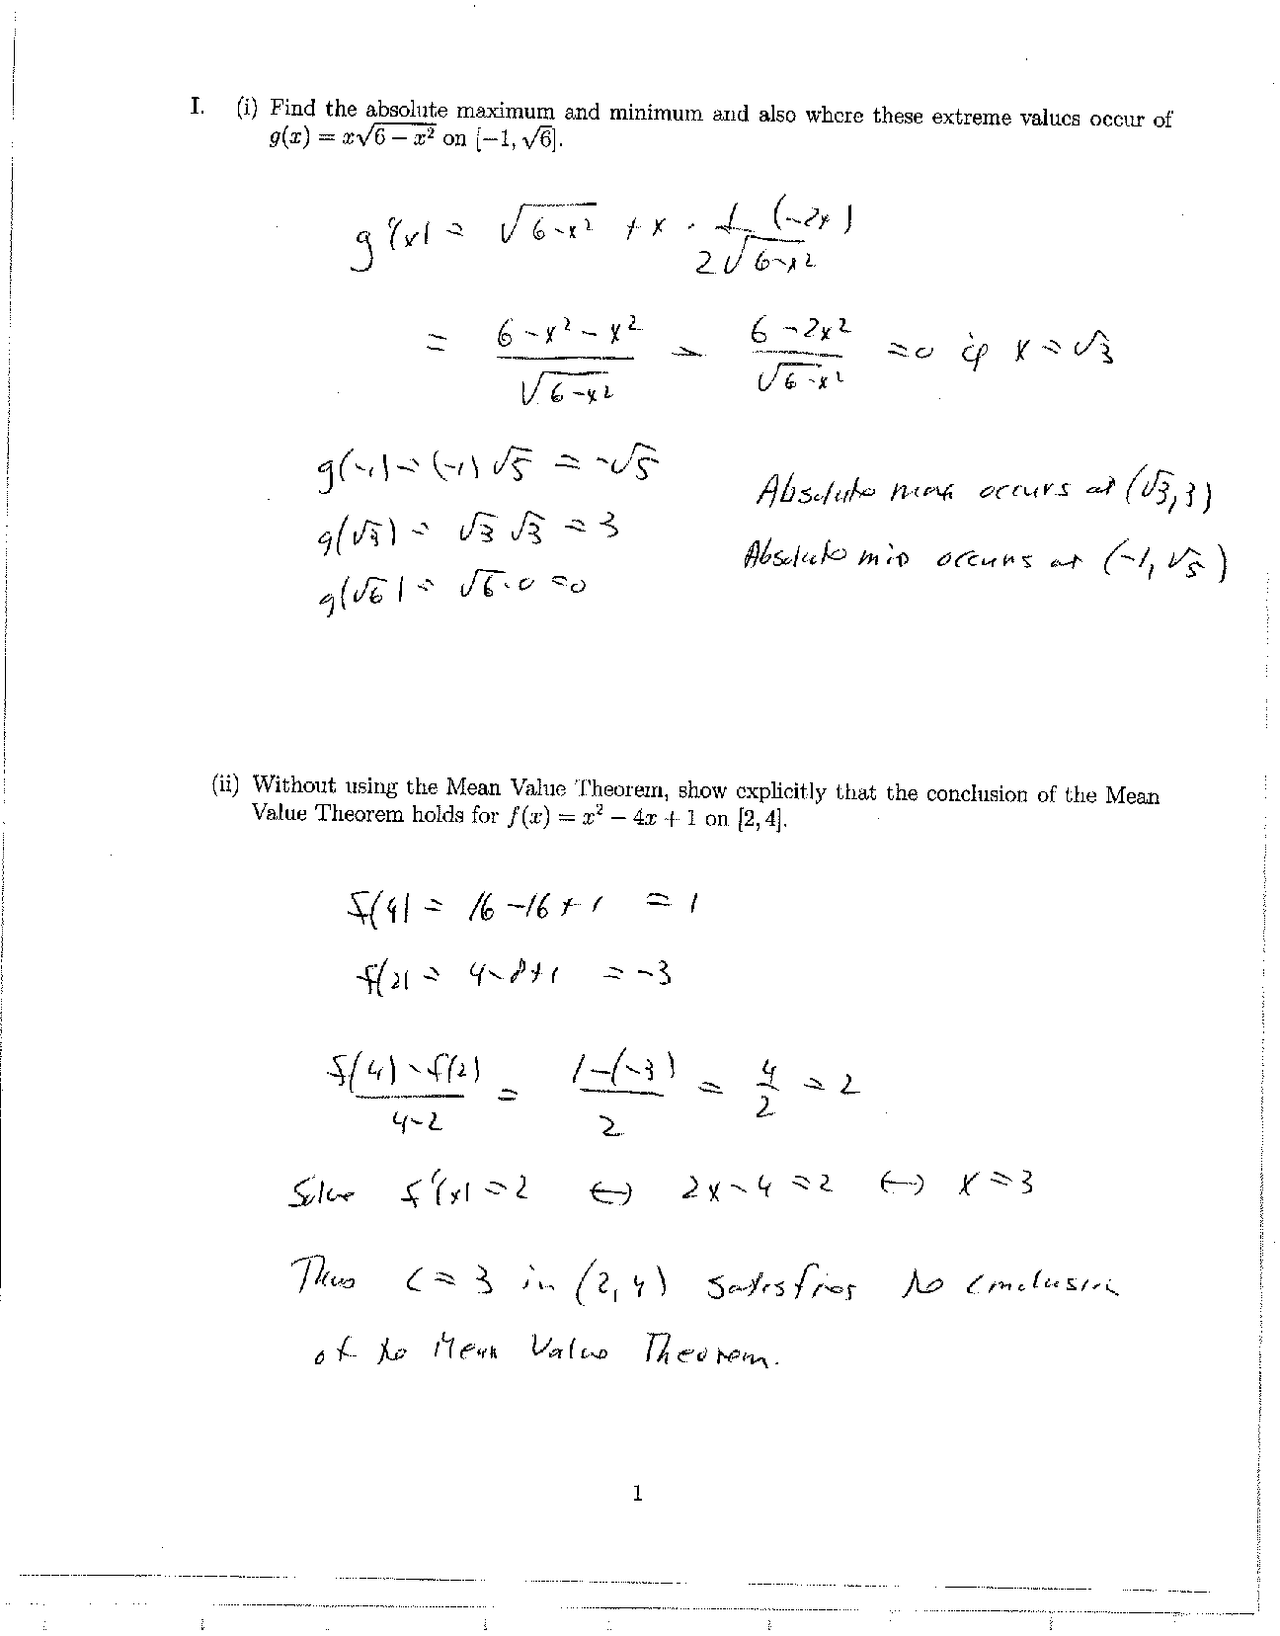 I. (i) Find the absolute maximum and minimum and also where these extreme values occur of
g(x) = x√(6 − x²) on [−1, √6].
g'(x) = √(6-x²) + x · 1/(2√(6-x²)) (-2x)
= (6-x²-x²)/√(6-x²) = (6-2x²)/√(6-x²) = 0 if x = √3
g(-1) = (-1)√5 = -√5
g(√3) = √3 √3 = 3
g(√6) = √6·0 = 0
Absolute max occurs at (√3, 3)
Absolute min occurs at (-1, √5)
(ii) Without using the Mean Value Theorem, show explicitly that the conclusion of the Mean
Value Theorem holds for f(x) = x² − 4x + 1 on [2, 4].
f(4) = 16-16+1 = 1
f(2) = 4-8+1 = -3
(f(4)-f(2))/(4-2) = (1-(-3))/2 = 4/2 = 2
Solve f'(x) = 2 ↔ 2x-4 = 2 ↔ x = 3
Thus c = 3 in (2, 4) satisfies the conclusion
of the Mean Value Theorem.
1